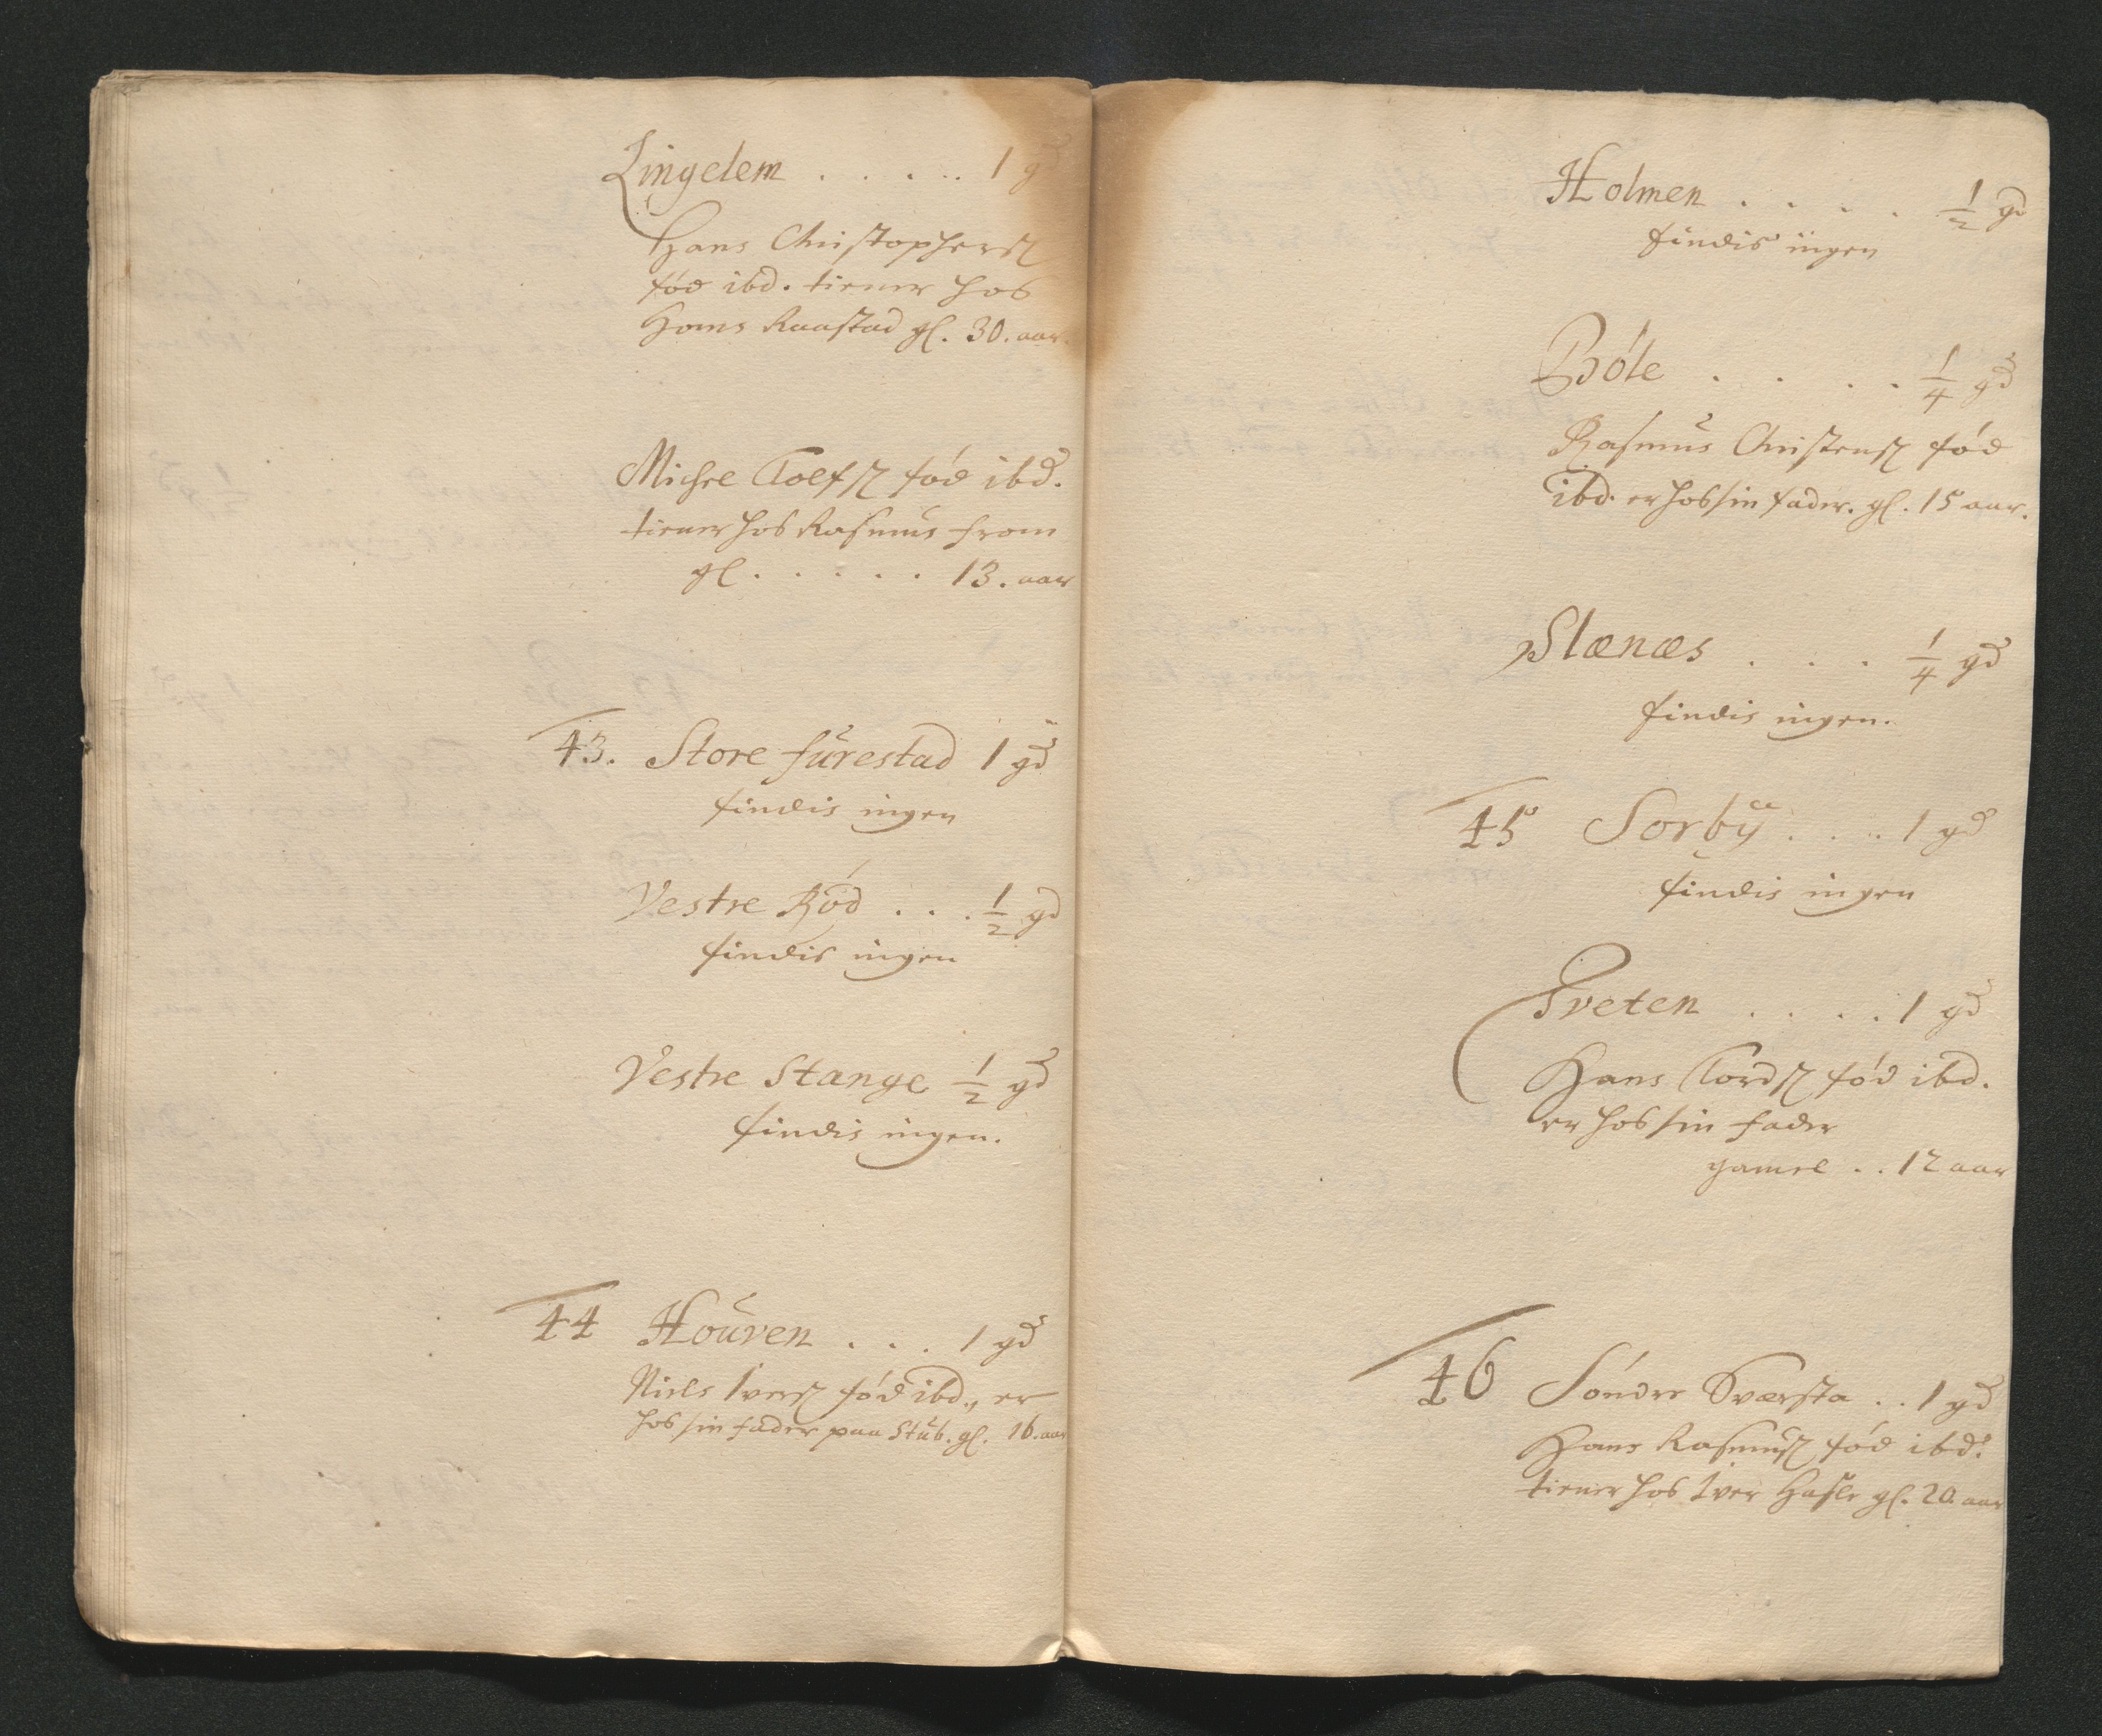 Lingelem . . . . . 1 gd
Hans Christophersz
fød ibd. tiener hos
Hans Raastad gl. 30. aar.
Michel Toefsz fød ibd.
tiener hos Rasmus from
gl . . . . . 13. aar
43. Store fúrestad 1 gd
findis ingen
Vestre Rød . . . 1/2 gd
findis ingen
Vestre Stange 1/2 gd
findis ingen.
44 Hoúven . . . 1 gd
Niels Iversz fød ibd., er
hos sin fader paa Stúb. gl. 16. aar
Holmen . . . . . 1/2 gd
findis ingen
Bóle . . . . 1/4 gd
Rasmus Christensz fød
ibd. er hos sin fader. gl. 15 aar.
Slænæs . . . 1/4 gd
findis ingen.
45 Sorbÿ . . . . 1 gd
findis ingen
Tveten . . . . 1 gd
Hans Tordsz fød ibd.
er hos sin fader
gamel . . 12 aar
46 Søndre Sværsta . . 1 gd
Hans Rasmusz fød ibd.
tiener hos Iver Hasle gl. 20. aar